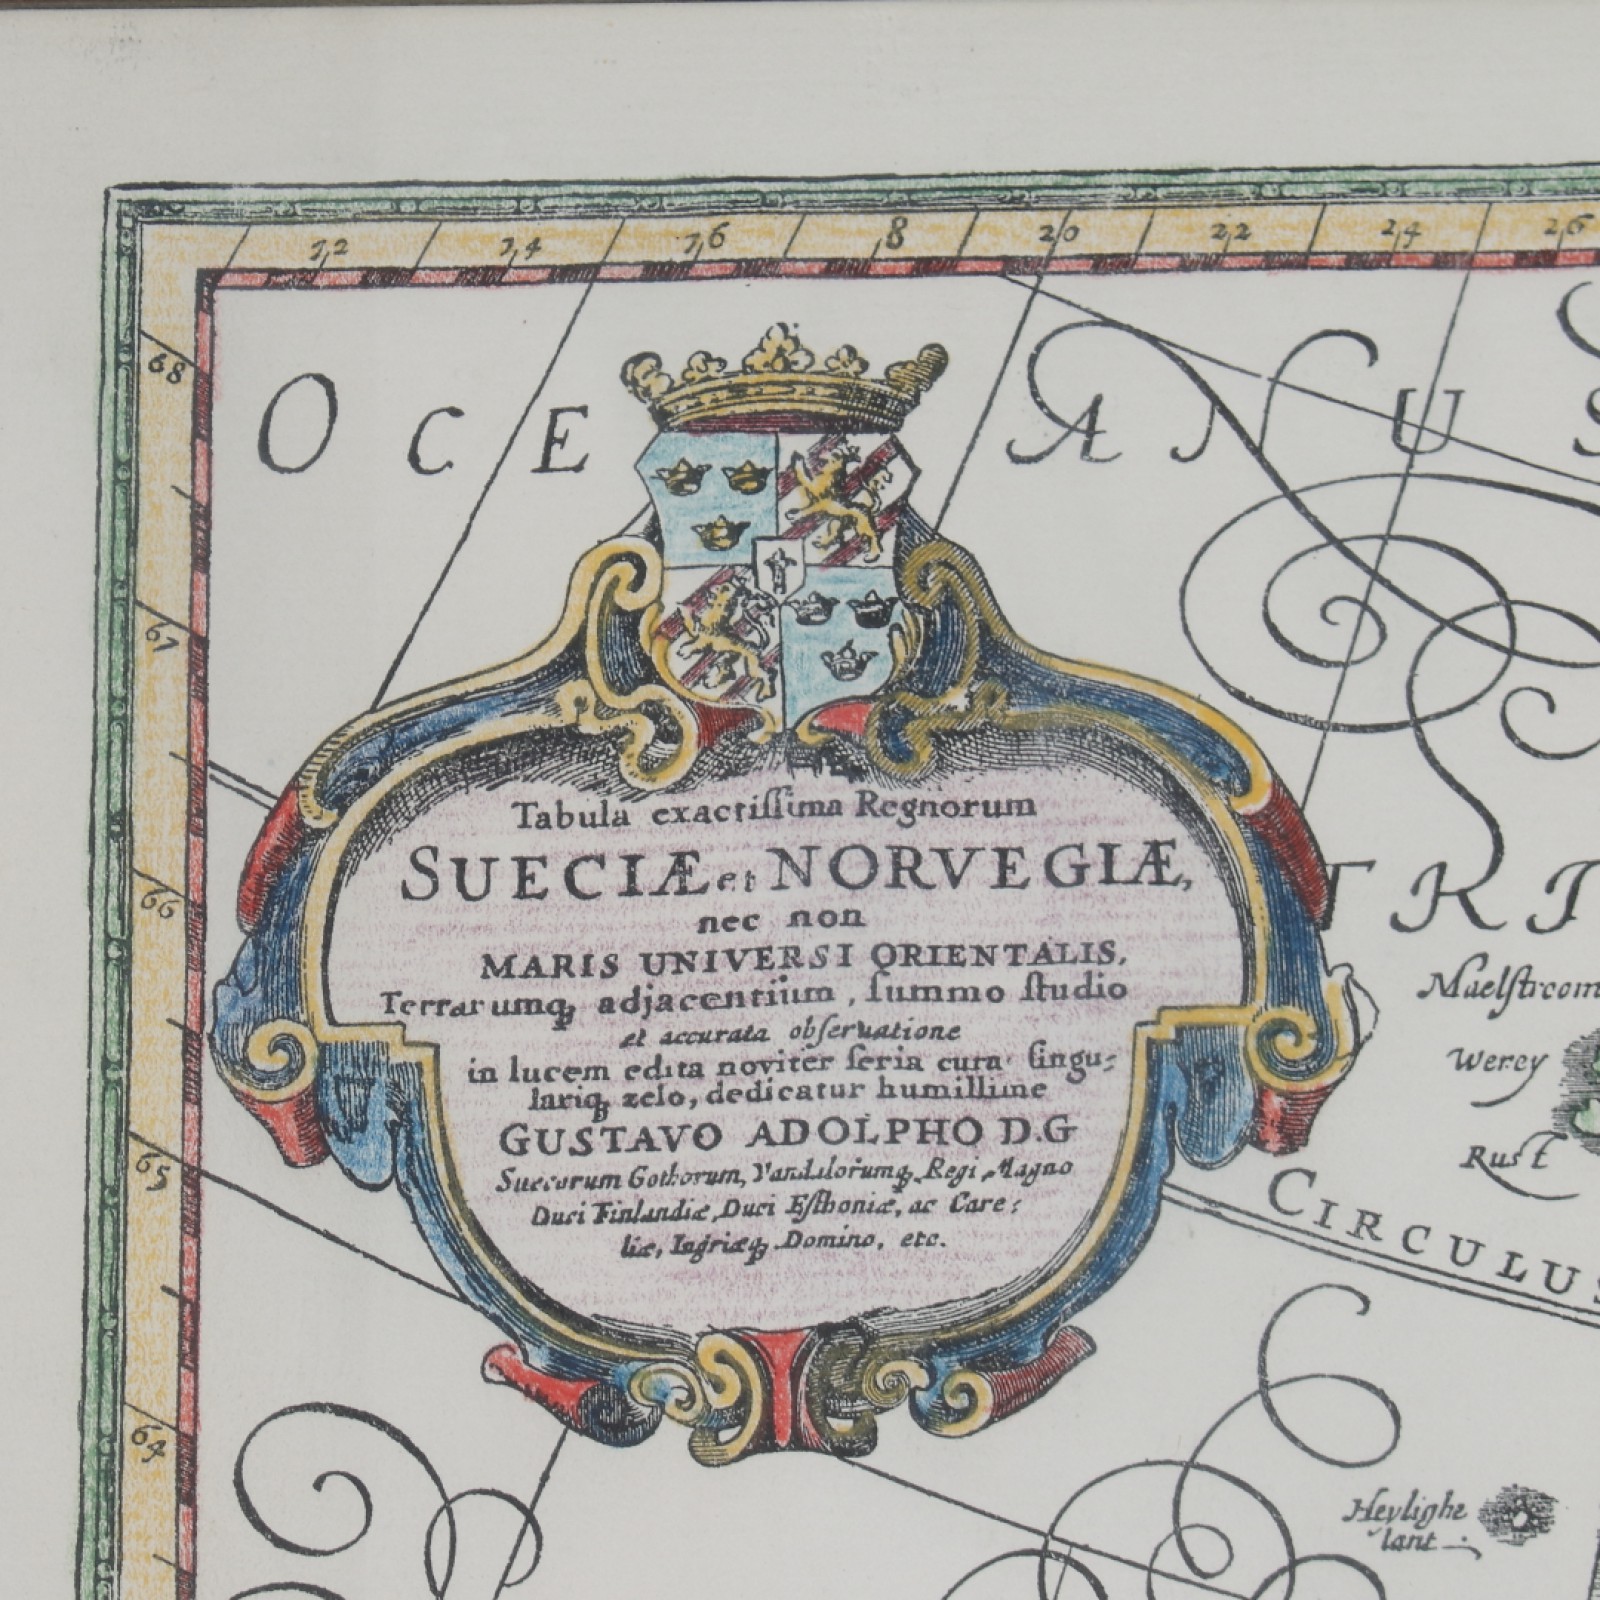 12 14 16 18 20 22 24 26
68
OCEANUS
67
Tabula exactissima Regnorum
SUECIÆ et NORVEGIÆ,
nec non
MARIS UNIVERSI ORIENTALIS,
Terrarumq; adjacentium, summo studio
et accurata observatione
in lucem edita noviter seria cura singu-
lariq; zelo, dedicatur humillime
GUSTAVO ADOLPHO D.G
Suecorum Gothorum, Vandalorumq; Regi, Magno
Duci Finlandiæ, Duci Esthoniæ, ac Care:
liæ, Ingriæq; Domino, etc.
66
TRI
Maelstroom
Werey
Rust
65
CIRCULUS
64
Heylighe
lant